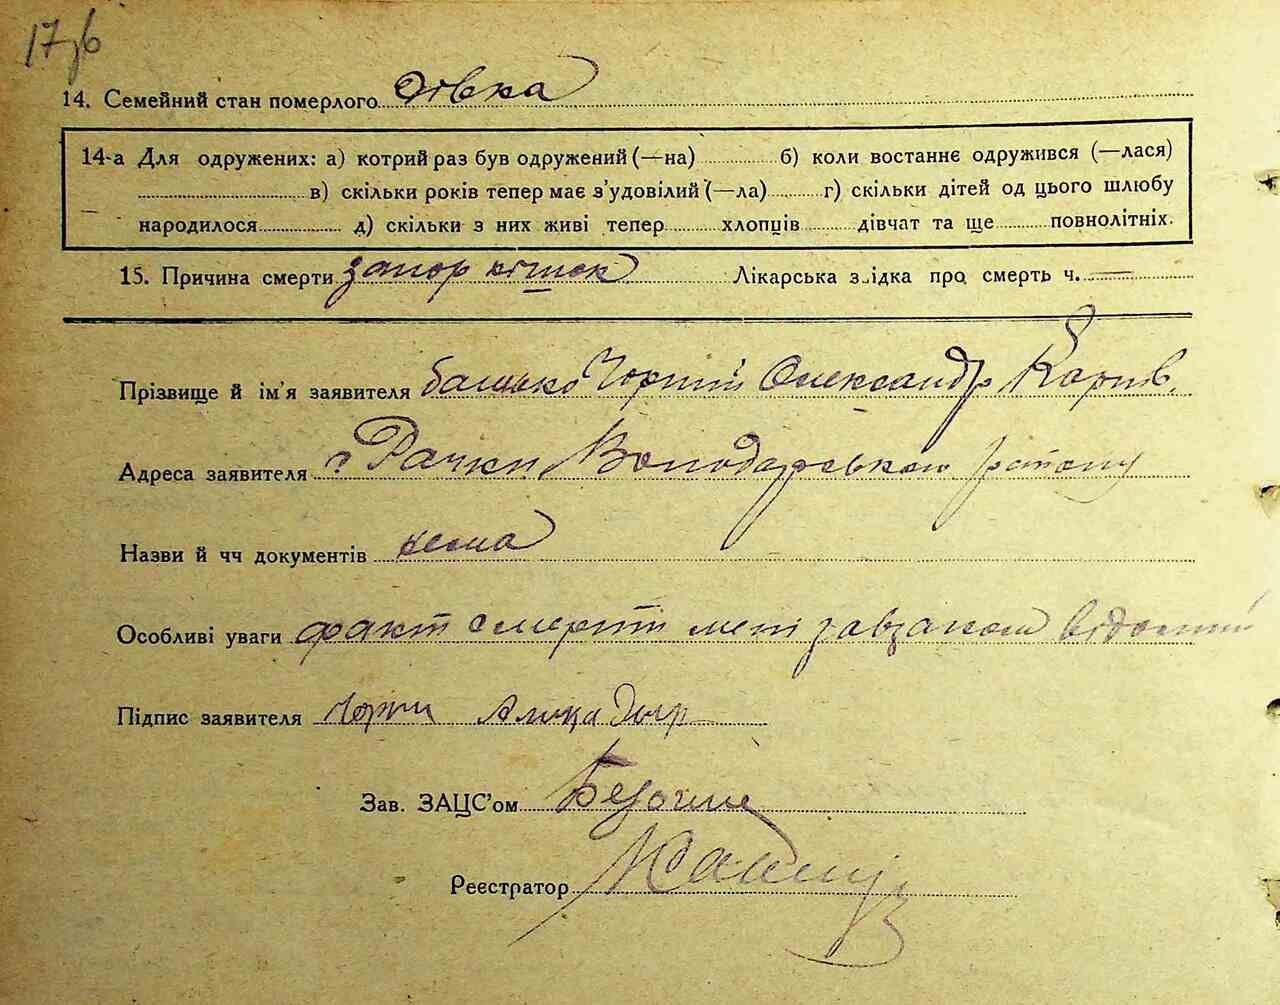 17зв
14. Семейний стан померлого дівка
14-а Для одружених: а) котрий раз був одружений (—на) б) коли востаннє одружився (—лася)
в) скільки років тепер має з'удовілий (—ла) г) скільки дітей од цього шлюбу
народилося д) скільки з них живі тепер хлопців дівчат та ще повнолітніх.
15. Причина смерти запор кішок Лікарська з ідка про смерть ч. —
Прізвище й ім'я заявителя батько Чорний Олександр Карпів.
Адреса заявителя с Рачки Володарського району
Назви й чч документів нема
Особливі уваги факт смерти мені завзагом відомий
Підпис заявителя Чорни
Зав. ЗАЦС'ом
Реєстратор